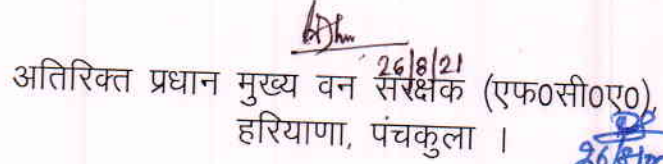 26/8/21
अतिरिक्त प्रधान मुख्य वन संरक्षक (एफ०सी०ए०),
हरियाणा, पंचकुला ।